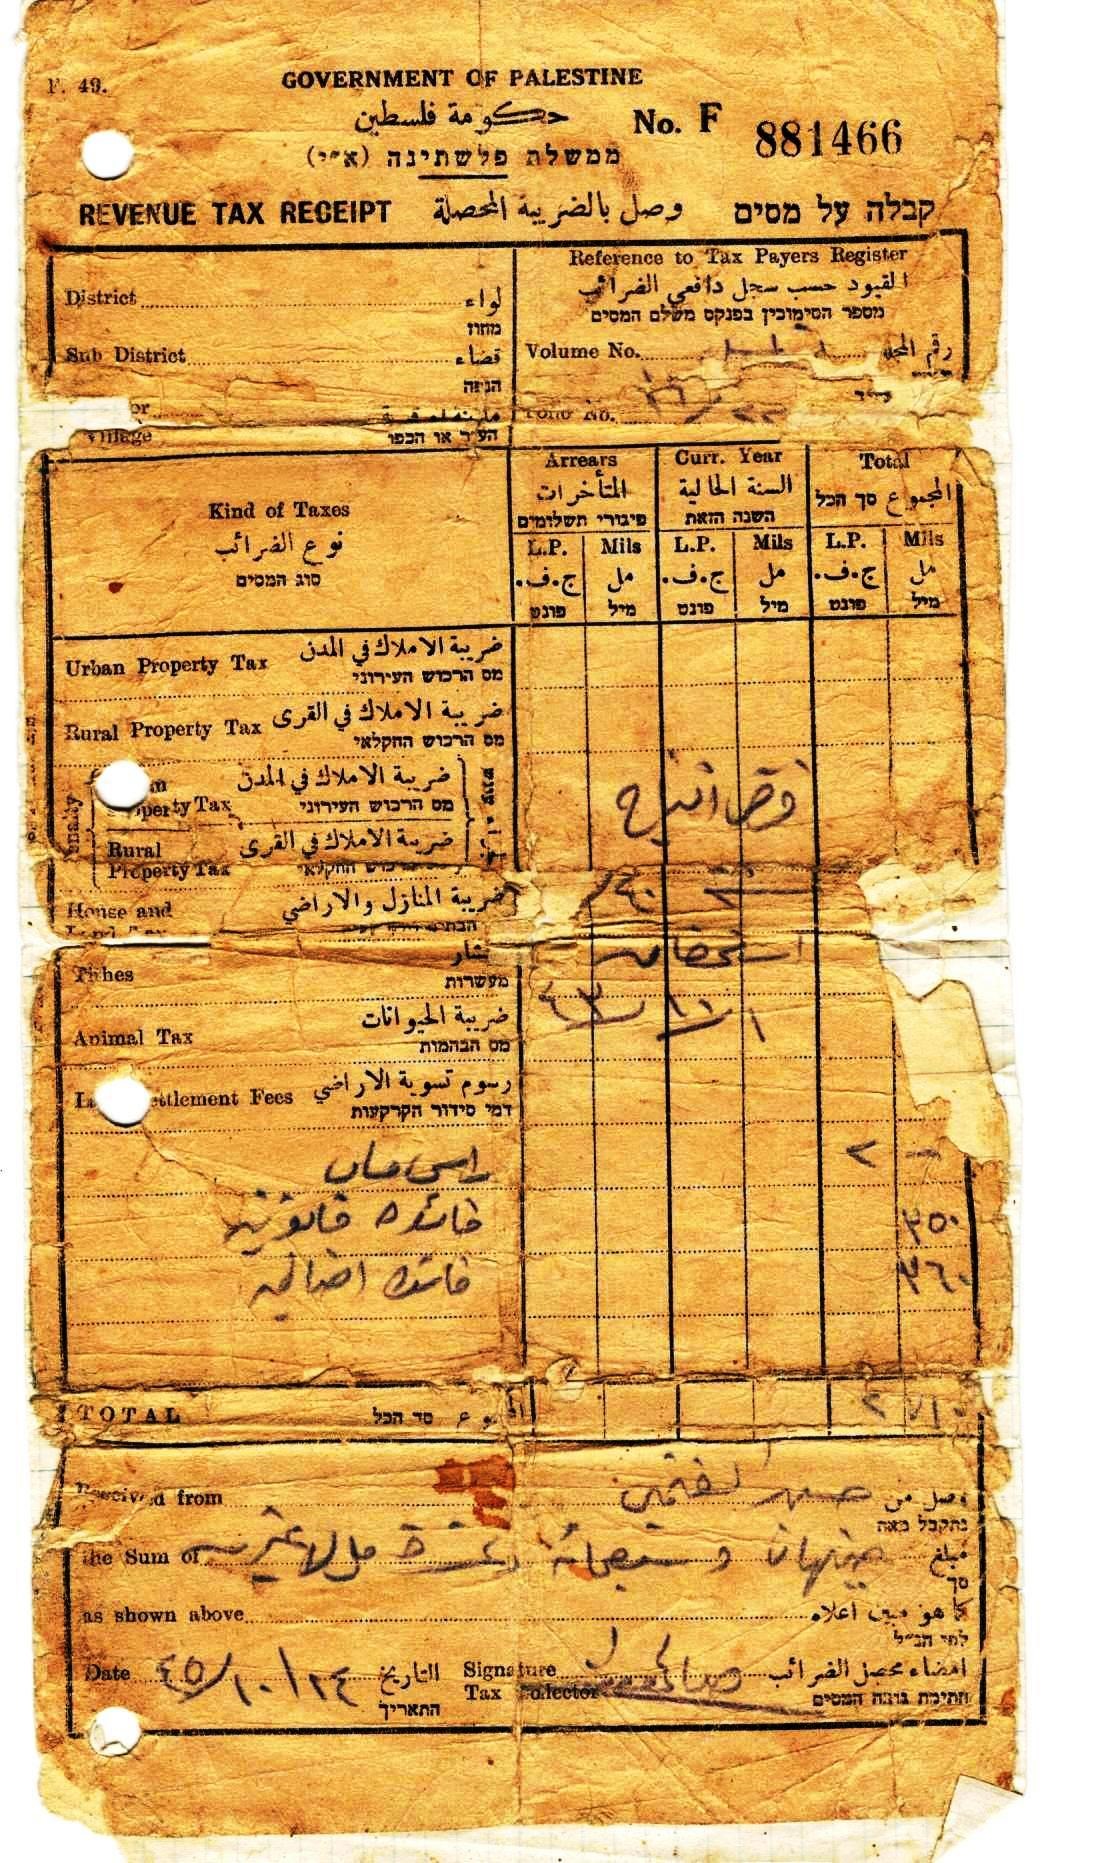 F. 49.
GOVERNMENT OF PALESTINE
حكومة فلسطين
No. F 881466
ממשלת פלשתינה (א״י)
REVENUE TAX RECEIPT وصل بالضريبة المحصلة קבלה על מסים
Reference to Tax Payers Register
القيود حسب سجل دافعي الضرائب
מספר הסימוכין בפנקס משלם המסים
District لواء
מחוז
Sub District قضاء
הנפה
Volume No. رقم المجلد
Folio No.
or
Village
העיר או הכפר
Kind of Taxes
نوع الضرائب
סוג המסים
Arrears Curr. Year Total
المتأخرات السنة الحالية المجموع סך הכל
פיגורי תשלומים השנה הזאת
L.P. Mils L.P. Mils L.P. Mils
ج.ف. مل ج.ف. مل ج.ف. مل
פונט מיל פונט מיל פונט מיל
Urban Property Tax ضريبة الاملاك في المدن
מס הרכוש העירוני
Rural Property Tax ضريبة الاملاك في القرى
מס הרכוש החקלאי
Property Tax ضريبة الاملاك في المدن
מס הרכוש העירוני
Rural ضريبة الاملاك في القرى
Property Tax
House and ضريبة المنازل والاراضي
Tithes
מעשרות
استحقاق
Animal Tax ضريبة الحيوانات
מס הבהמות
١/١١/٤٣
Settlement Fees رسوم تسوية الاراضي
דמי סידור הקרקעות
راس مال ٢ -
فائدة قانونية ٣٥٠
فائدة اضافية ٣٦٠
TOTAL סך הכל ٢ ٧١٠
Received from وصل من
נתקבל מאת
the Sum of مبلغ
סך
جنيهان وسبعمائة وعشرة مل لا غير
as shown above كما هو مبين اعلاه
לפי הנ״ל
Date ٢٤/١٠/٤٥ التاريخ
התאריך
Signature امضاء محصل الضرائب
Tax Collector חתימת גובה המסים